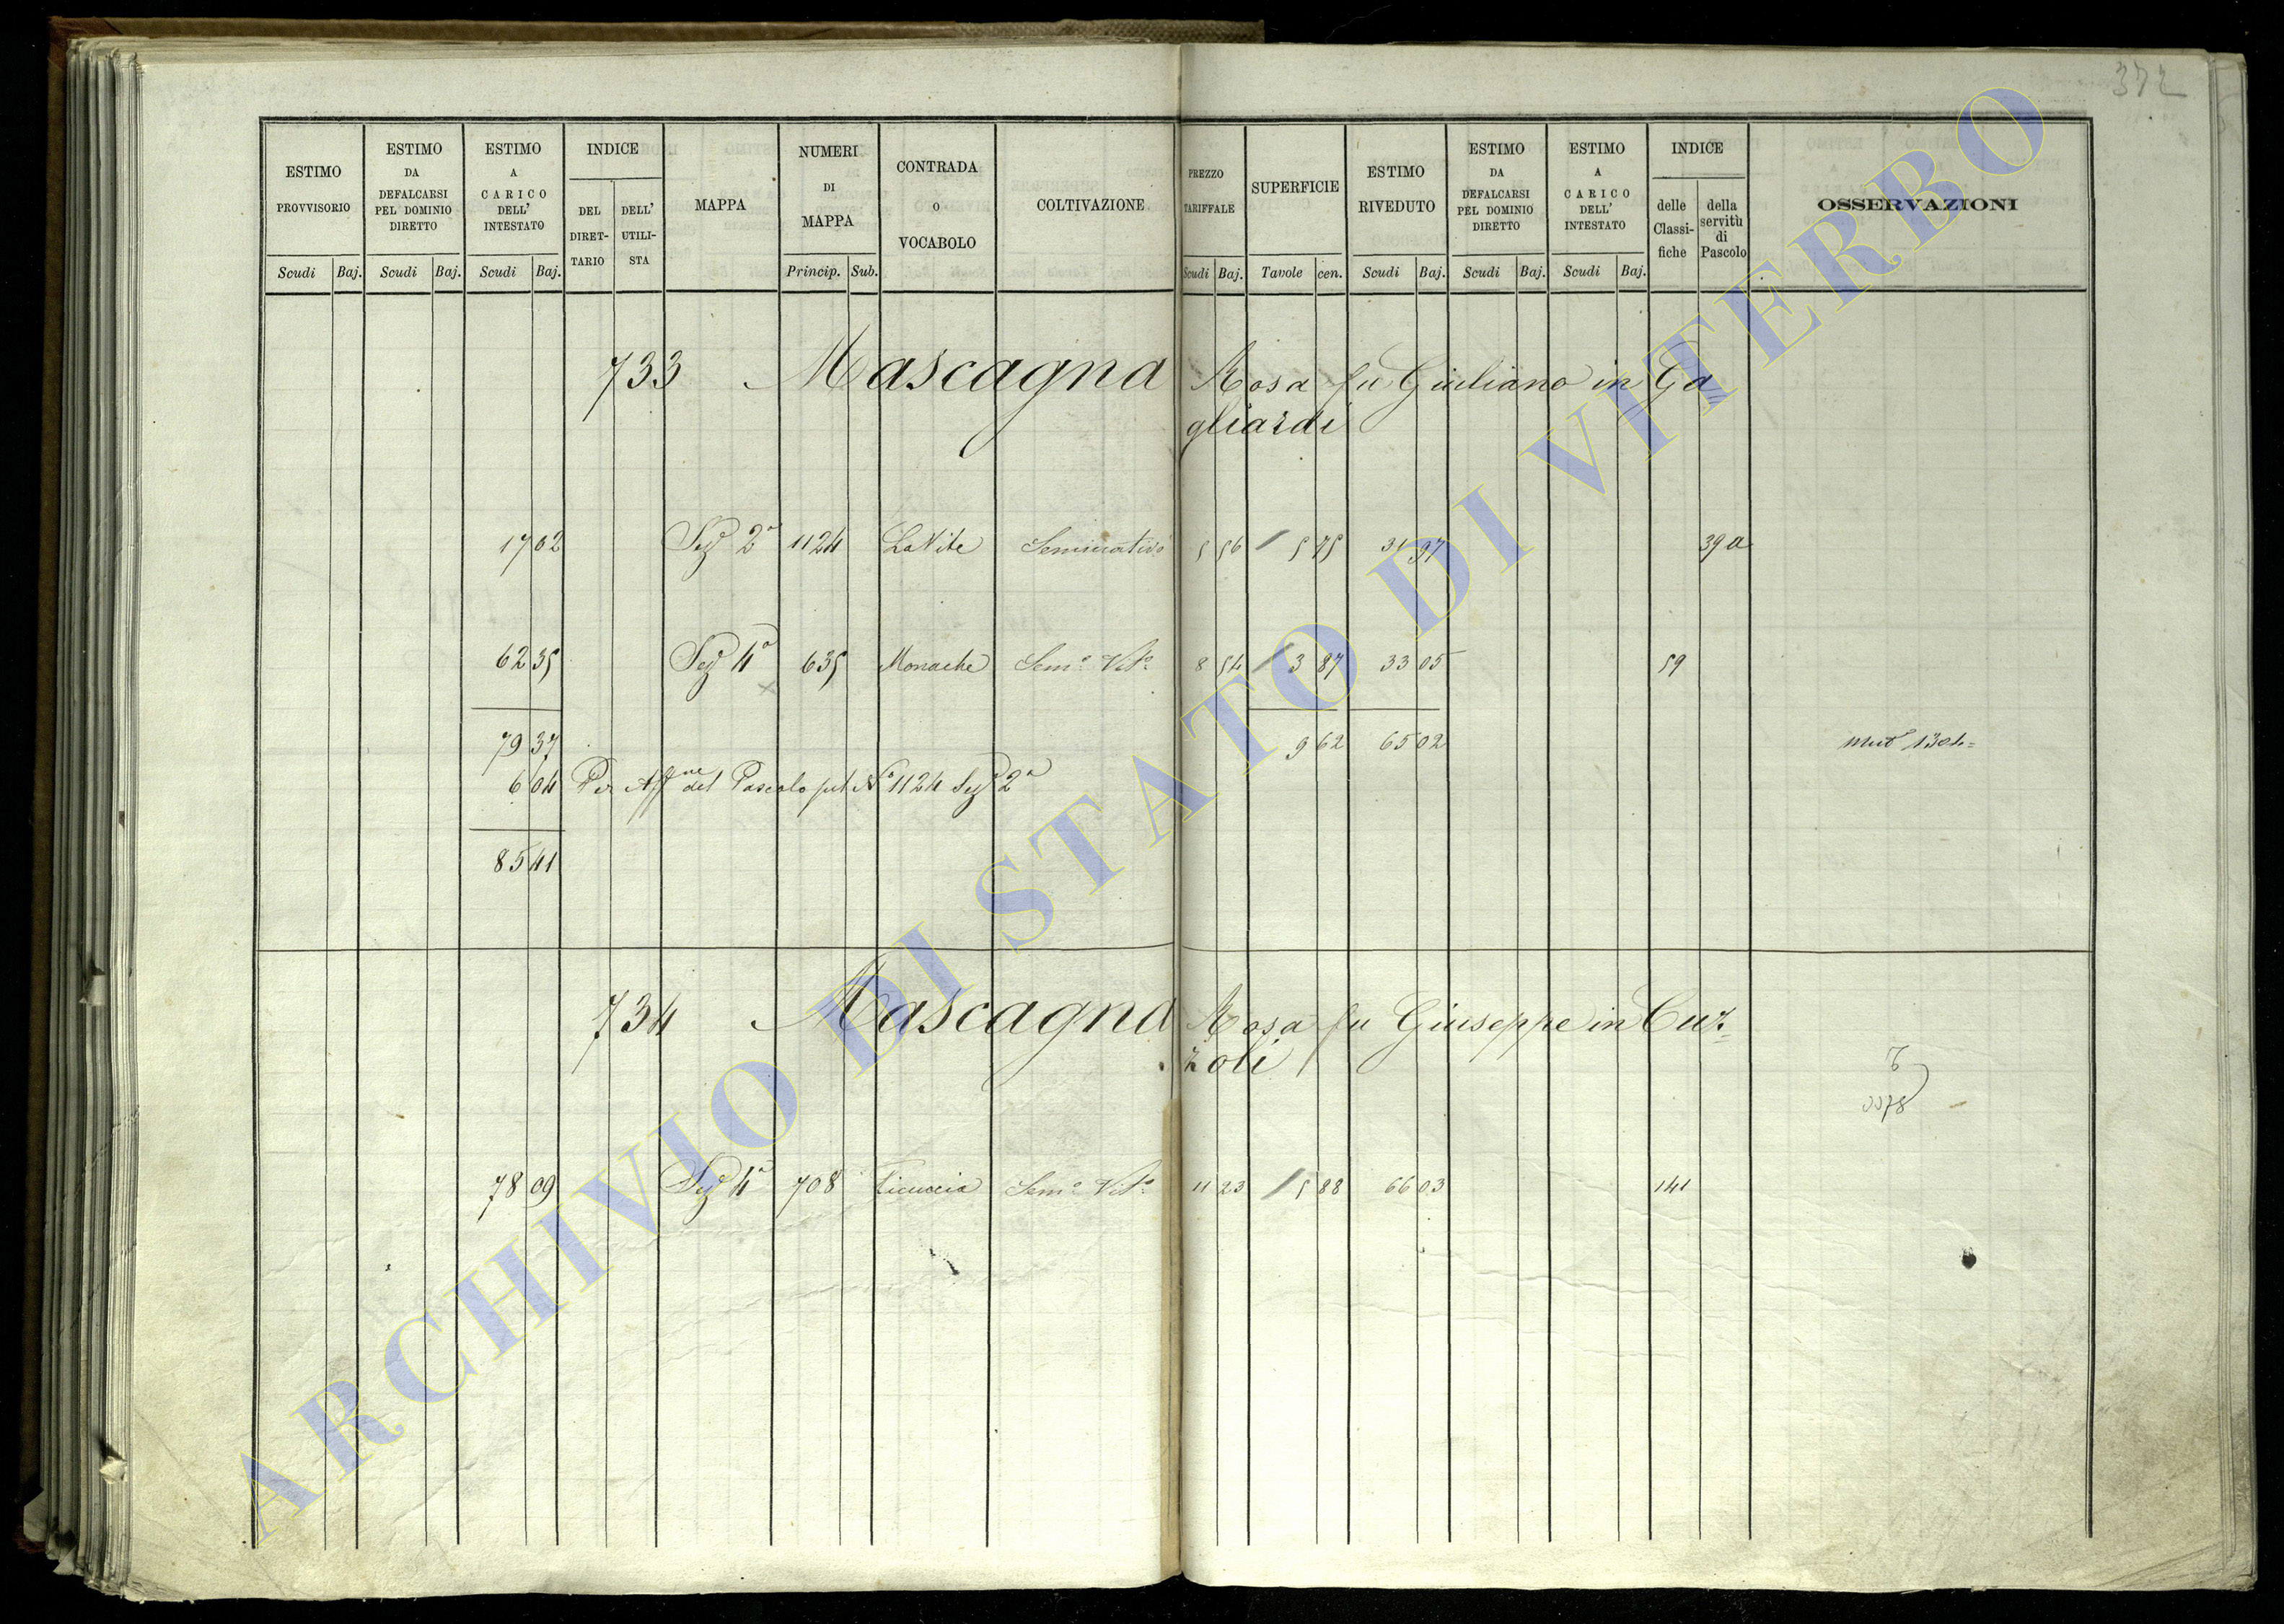 372
ESTIMO PROVVISORIO
ESTIMO DA DEFALCARSI PEL DOMINIO DIRETTO
ESTIMO A CARICO DELL' INTESTATO
INDICE
DEL DIRET-TARIO
DELL' UTILI-STA
MAPPA
NUMERI DI MAPPA
CONTRADA O VOCABOLO
COLTIVAZIONE
PREZZO TARIFFALE
SUPERFICIE
ESTIMO RIVEDUTO
ESTIMO DA DEFALCARSI PEL DOMINIO DIRETTO
ESTIMO A CARICO DELL' INTESTATO
INDICE
delle Classi-fiche
della servitù di Pascolo
OSSERVAZIONI
Scudi Baj. Scudi Baj. Scudi Baj. Princip. Sub. Scudi Baj. Tavole cen. Scudi Baj. Scudi Baj. Scudi Baj.
733 Mascagna Rosa fu Giuliano in Ga
gliardi
17 02 Sez 2a 1124 La Vite Seminativo 5 56 5 75 31 97 39 a
62 35 Sez 4a 635 Monache Semo Vito 8 54 3 87 33 05 59
79 37 9 62 65 02
6 04 Per Affne del Pascolo sul No 1124 Sez 2a
85 41
734 Mascagna Rosa fu Giuseppe in Cuz=
zoli
78 09 Sez 4a 708 Ficuccia Semo Vito 11 23 5 88 66 03 141
ARCHIVIO DI STATO DI VITERBO